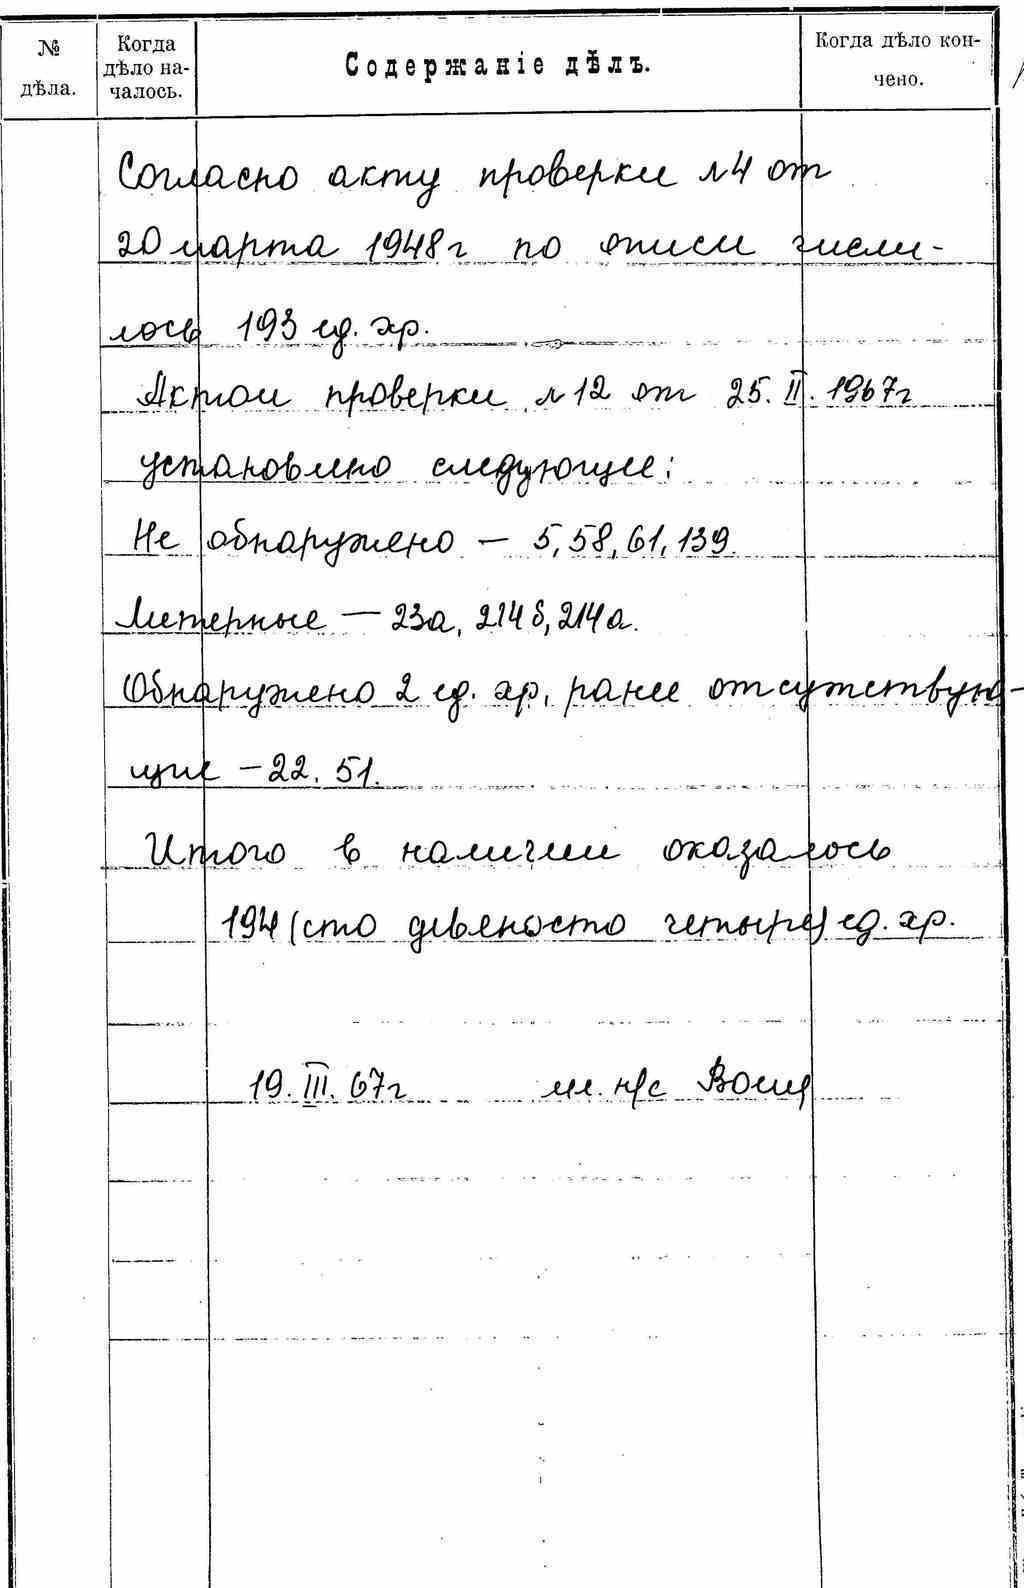 № дѣла.
Когда дѣло на-
чалось.
Содержаніе дѣлъ.
Когда дѣло кон-
чено.
Согласно акту проверки №4 от
20 марта 1948г по описи числи-
лось 193 ед. хр.
Актом проверки №12 от 25.II.1967г
установлено следующее:
Не обнаружено — 5, 58, 61, 139.
Литерные — 23а, 214б, 214а.
Обнаружено 2 ед. хр, ранее отсутствую-
щие — 22. 51.
Итого в наличии оказалось
194 (сто девяносто четыре) ед. хр.
19.III.67г мл. н/с